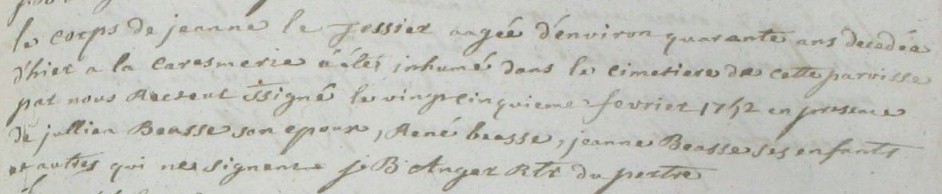 le corps de jeanne le Tessier aagée d'environ quarante ans decedée
d'hier a la caresmerie a été inhumé dans le cimetiere de cette parroisse
par nous Recteur ssigné le vingt cinquieme fevrier 1752 en presence
de jullien Beasse son epoux, René beasse, jeanne Beasse ses enfants
et autres qui ne signent J B Anger Rtr du pertre